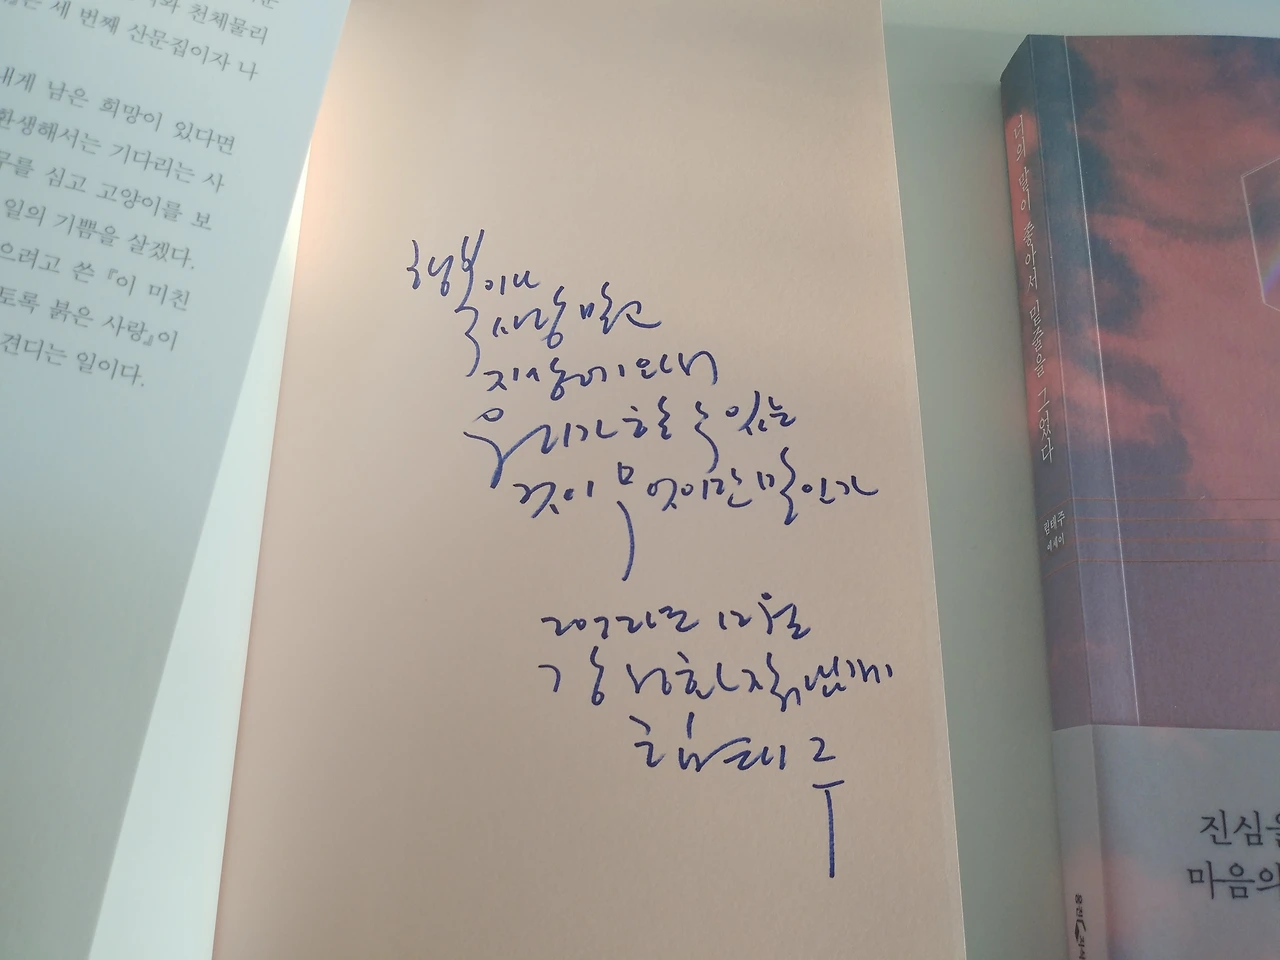 천체물리
세 번째 산문집이자 나
내게 남은 희망이 있다면
환생해서는 기다리는 사
심고 고양이를 보
일의 기쁨을 살겠다.
으려고 쓴 『이 미친
토록 붉은 사랑』이
견디는 일이다.
행복이나
사랑 말고
지상에 와서
우리가 할 수 있는
것이 무엇이란 말인가
2021년 12월
림태주
너의 말이 좋아서 밑줄을 그었다
림태주
에세이
진심을
마음의